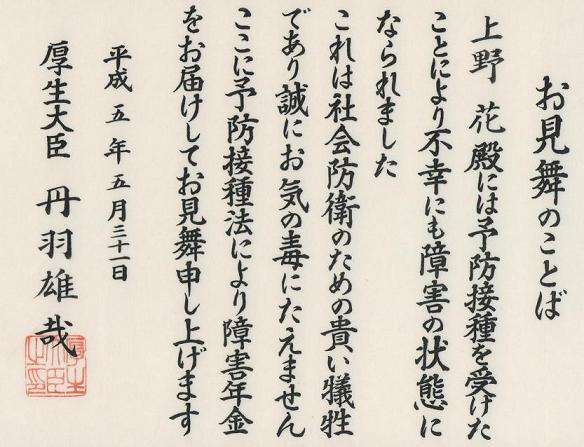 お見舞のことば
上野 花 殿には予防接種を受けた
ことにより不幸にも障害の状態に
なられました
これは社会防衛のための貴い犠牲
であり誠にお気の毒にたえません
ここに予防接種法により障害年金
をお届けしてお見舞申し上げます
平成 五 年 五 月 三十一 日
厚生大臣 丹羽雄哉